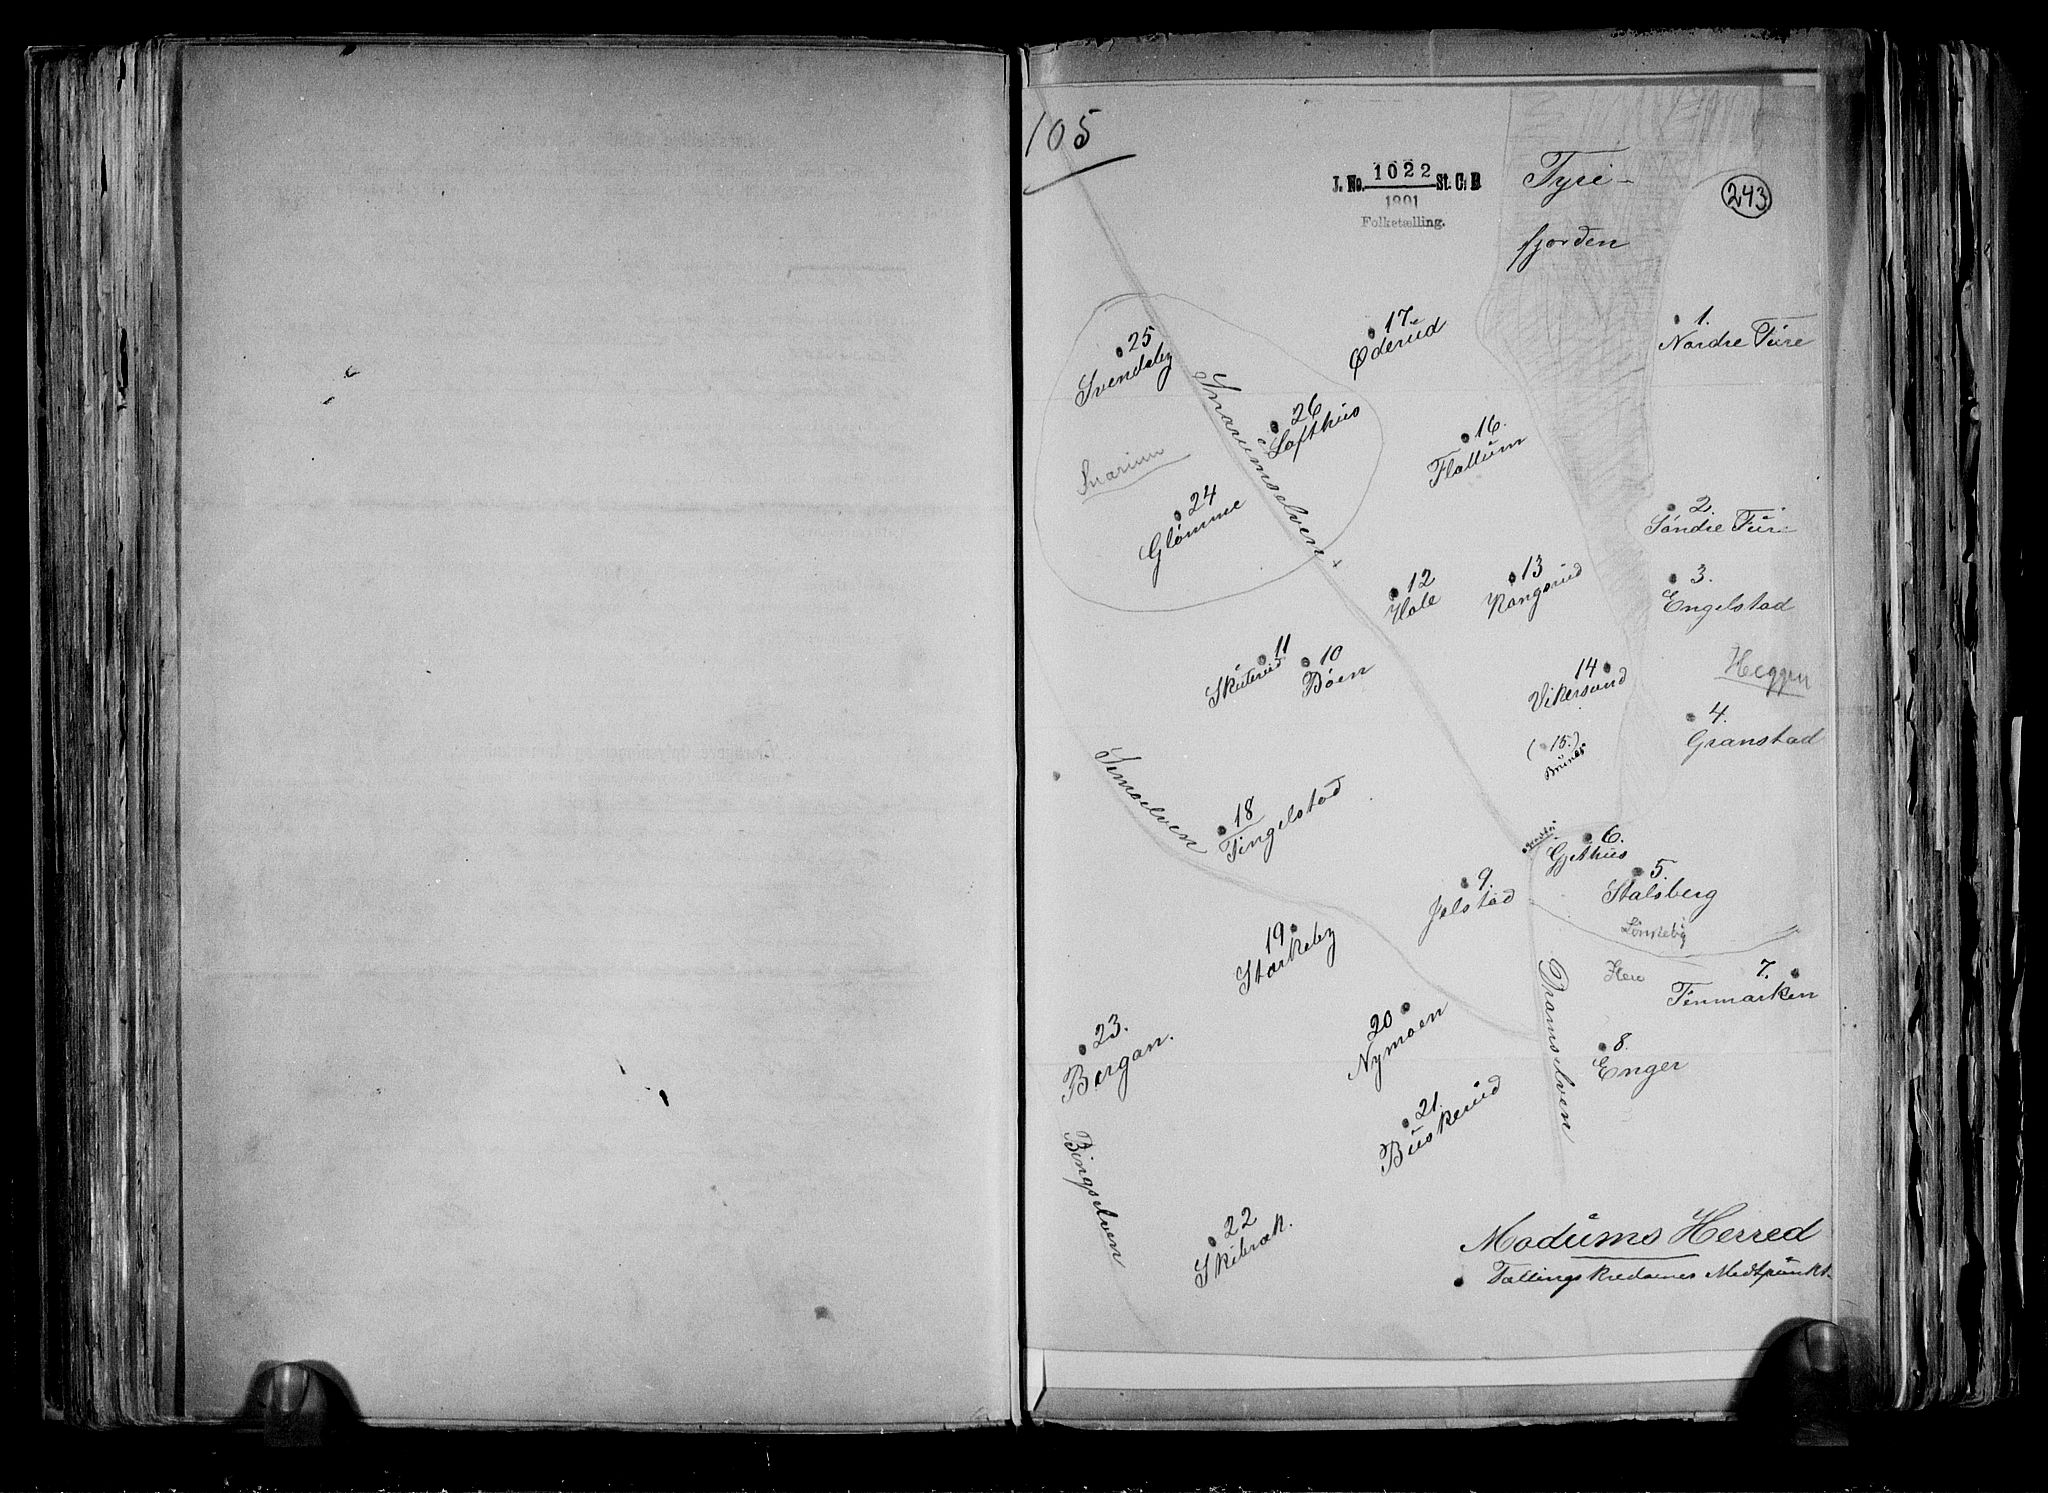 105
J. No. 1022 St. C. B
1891
Folketælling.
243
Tyri-
fjorden
17.
Øderud
1.
Nordre Fure
25
Svendsby
26
Lofthus
Snarumselven
Snarum
16.
Flattum
24
Glømme
2.
Søndre Fure
12
Hole
13
Kongsrud
3.
Engelstad
11
Skuterud
10
Bøen
14
Vikersund
Heggen
(15.)
Brunæs
4.
Granstad
Simoelven
18
Tingelstad
6.
Gjethus
5.
Stalsberg
9.
Jelstad
19
Stærkeby
Here
7.
Finmarken
Dramselven
20
Nymoen
8.
Enger
23.
Bergan.
21.
Buskerud
Bingselven
22
Skibræk.
Modums Herred
Tællingskredsenes Midtpunkt.